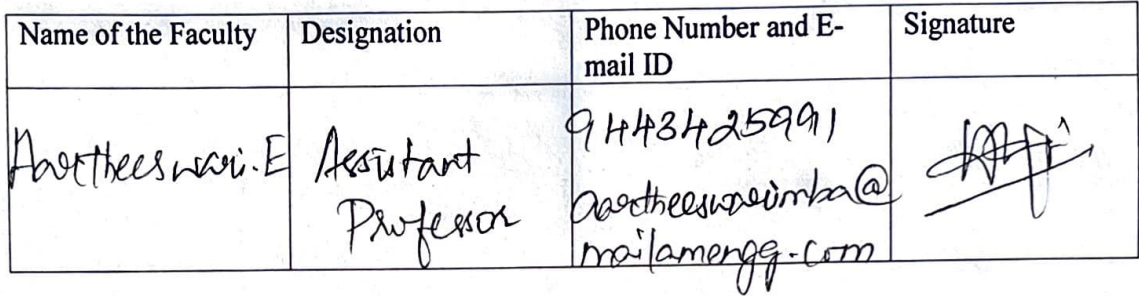 Name of the Faculty
Designation
Phone Number and E-
mail ID
Signature
Aartheeswari.E
Assistant
Professor
9443425991
aartheeswarimba@
mailamengg.com